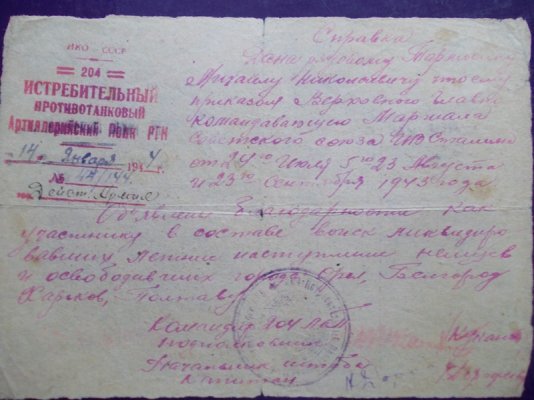 НКО СССР
204
ИСТРЕБИТЕЛЬНЫЙ
ПРОТИВОТАНКОВЫЙ
Артиллерийский Полк РГК
14 Января 1944
№ 44/144
Действ. Армия
Справка
Дана
Михаилу Николаевичу в том
приказом Верховного Главно
командавающего Маршала
Советского союза Сталина
от 24го Июля 5го 23 Августа
и 23го Сентября 1943 года
Объявлены Благодарности как
участнику в составе войск ликвидиро
вавших летние наступление немцев
и освободивших города Орел, Белгород
Харьков, Полтаву
Командир 204
подполковник
Начальник штаба
капитан